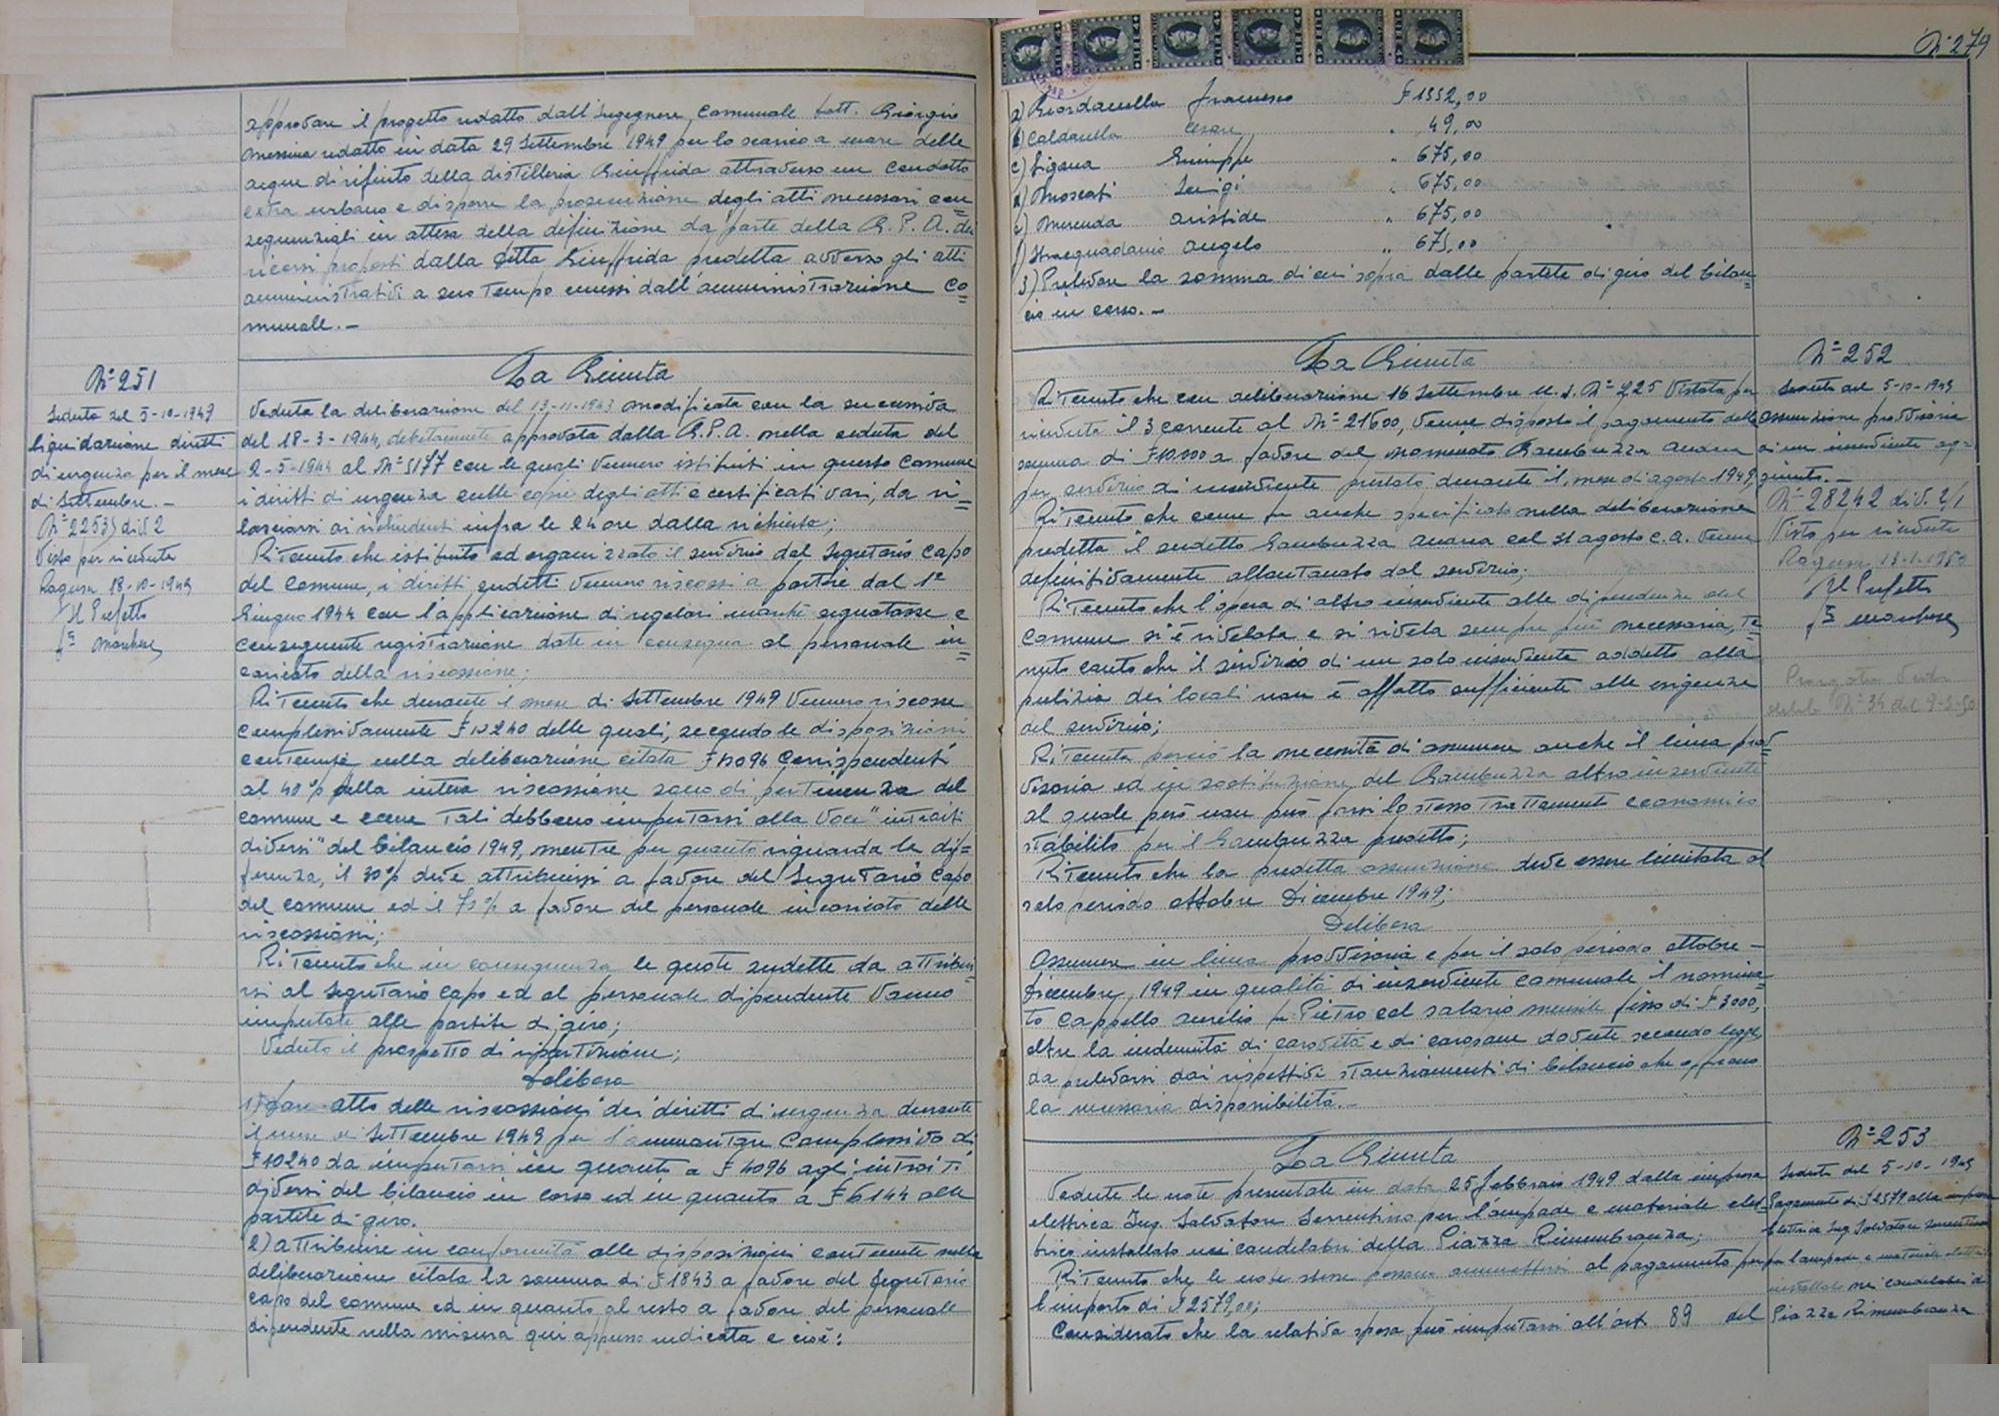 approvare il progetto redatto dall'Ingegnere Comunale Dott. Giorgio
Messina redatto in data 29 Settembre 1949 per lo scarico a mare delle
acque di rifiuto della distilleria Giuffrida attraverso un condotto
extra urbano e disporre la prosecuzione degli atti necessari con=
sequenziali in attesa della definizione da parte della G. P. A. dei
ricorsi proposti dalla Ditta Giuffrida predetta avverso gli atti
amministrativi a suo tempo emessi dall'amministrazione Co=
munale. -
N° 251
Seduta del 5-10-1949
Liquidazione diritti
di urgenza per il mese
di Settembre. -
div. 2
Visto per ricevuta
Ragusa 18-10-1949
Il Prefetto
La Giunta
Veduta la deliberazione del 13-11-1943 modificata con la successiva
del 18-3-1944, debitamente approvata dalla G.P.A. nella seduta del
2-5-1944 al N° 5177 con le quali vennero istituiti in questo Comune
i diritti di urgenza sulle copie degli atti e certificati vari, da ri=
lasciarsi ai richiedenti infra le 24 ore dalla richiesta;
Ritenuto che istituito ed organizzato il servizio dal Segretario Capo
del Comune, i diritti suddetti vennero riscossi a partire dal 1°
Giugno 1944 con l'applicazione di regolari marche segnatasse e
conseguente registrazione date in consegna al personale in=
caricato della riscossione;
Ritenuto che durante il mese di Settembre 1949 vennero riscosse
complessivamente £ 10240 delle quali, secondo le disposizioni
contenute nella deliberazione citata £ 4096 corrispondenti
al 40% della intera riscossione sono di pertinenza del
Comune e come tali debbono imputarsi alla voce "introiti
diversi" del bilancio 1949, mentre per quanto riguarda la dif=
ferenza, il 30% deve attribuirsi a favore del Segretario Capo
del Comune ed il 70% a favore del personale incaricato delle
riscossioni;
Ritenuto che in conseguenza le quote suddette da attribuir
rsi al Segretario Capo ed al personale dipendente vanno
imputate alle partite di giro;
Veduto il prospetto di ripartizione;
Delibera
1) Dare atto delle riscossioni dei diritti di urgenza durante
il mese di Settembre 1949 per l'ammontare complessivo di
£ 10240 da imputarsi in quanto a £ 4096 agli introiti
diversi del bilancio in corso ed in quanto a £ 6144 alle
partite di giro.
2) attribuire in conformità alle disposizioni contenute nella
deliberazione citata la somma di £ 1843 a favore del Segretario
Capo del Comune ed in quanto al resto a favore del personale
dipendente nella misura qui appresso indicata e cioè:
N° 279
a) Francesco £ 1552,00
b) Caldarella Cesare " 49,00
c) Ligama Giuseppe " 675,00
d) Moscati Luigi " 675,00
e) Merenda Aristide " 675,00
f) Stracquadanio Angelo " 675,00
3) Prelevare la somma di cui sopra dalle partite di giro del bilan=
cio in corso. -
La Giunta
Ritenuto che con deliberazione 16 Settembre u. s. N° 225 vistata per
ricevuta il 3 corrente al N° 21600, venne disposto il pagamento della
somma di £ 10.000 a favore del nominato Gambuzza
per servizio di inserviente prestato durante il mese di agosto 1949;
Ritenuto che come fu anche specificato nella deliberazione
predetta il suddetto Gambuzza col 31 agosto c.a. venne
definitivamente allontanato dal servizio;
Ritenuto che l'opera di altro inserviente alle dipendenze del
Comune si è rivelata e si rivela sempre più necessaria, te=
nuto conto che il servizio di un solo inserviente addetto alla
pulizia dei locali non è affatto sufficiente alle esigenze
del servizio;
Ritenuta perciò la necessità di assumere anche il linea prov=
visoria ed in sostituzione del Gambuzza altro inserviente
al quale però non può farsi lo stesso trattamento economico
stabilito per il Gambuzza predetto;
Ritenuto che la predetta assunzione deve essere limitata al
solo periodo ottobre Dicembre 1949;
Delibera
Assumere in linea provvisoria e per il solo periodo ottobre -
Dicembre 1949 in qualità di inserviente comunale il nomina=
to Cappello Aurelio fu Pietro col salario mensile fisso di £ 3000,
oltre la indennità di carovita e di caropane dovute secondo legge,
da prelevarsi dai rispettivi stanziamenti di bilancio che offrono
la necessaria disponibilità. -
N° 252
Seduta del 5-10-1949
assunzione provvisoria
di un inserviente ag=
giunto. -
N° 28242 div. 2/1
Visto per ricevuta
Ragusa 13-1-1950
Il Prefetto
N° 34 del 9-3-50
La Giunta
Vedute le note presentate in data 25 febbraio 1949 dalla impresa
elettrica Ing. Salvatore Sorrentino per lampade e materiale elet=
trico installato nei candelabri della Piazza Rimembranza;
Ritenuto che le note stesse possono ammettersi al pagamento per
l'importo di £ 2579,00;
Considerato che la relativa spesa può imputarsi all'art. 89 del
N° 253
Seduta del 5-10-1949
Pagamento di £ 2579 alla impresa
Elettrica Ing. Salvatore Sorrentino
per lampade e materiale elettrico
installato nei candelabri di
Piazza Rimembranza